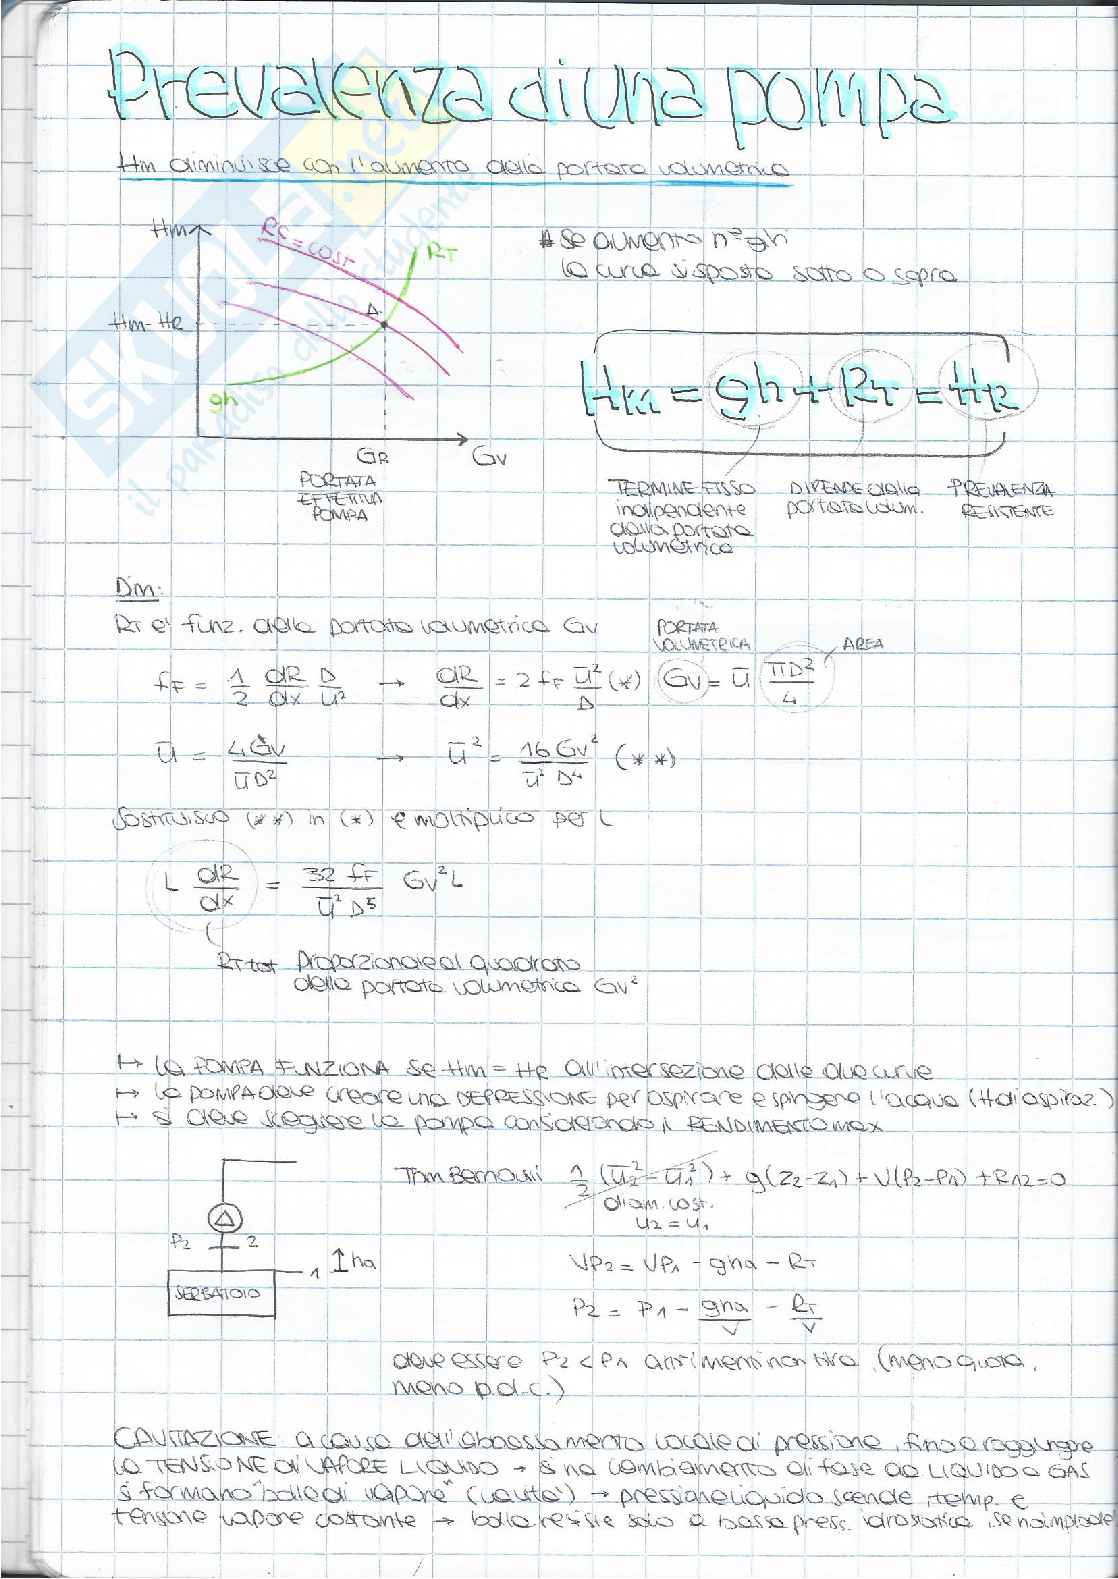 Prevalenza di una pompa
Hm diminuisce con l'aumento della portata volumetrica
Hm
RC = cost
RT
A
Hm = HR
gh
GR
GV
PORTATA
EFFETTIVA
POMPA
* Se aumento n° gh
la curva si sposta sotto o sopra
Hm = gh + RT = HR
TERMINE FISSO
indipendente
dalla portata
volumetrica
DIPENDE dalla
portata volum.
PREVALENZA
RESISTENTE
Dim:
RT e' funz. della portata volumetrica GV
PORTATA
VOLUMETRICA
AREA
fF = 1/2 dR/dx D/u² → dR/dx = 2 fF ū²/D (*) GV = ū πD²/4
ū = 4GV/πD² → ū² = 16 GV²/π² D⁴ (**)
Sostituisco (**) in (*) e moltiplico per L
L dR/dx = 32 fF/π² D⁵ GV² L
RT tot proporzionale al quadrato
della portata volumetrica GV²
↦ la POMPA FUNZIONA se Hm = HR all'intersezione delle due curve
↦ la POMPA deve creare una DEPRESSIONE per aspirare e spingere l'acqua (H di aspiraz.)
↦ si deve scegliere la pompa considerando il RENDIMENTO max
P2 2
1
ha
SERBATOIO
Thm Bernoulli 1/2 (ū2² - ū1²) + g(z2-z1) + V(P2-P1) + R12 = 0
diam. cost.
u2 = u1
VP2 = VP1 - gha - RT
P2 = P1 - gha/V - RT/V
deve essere P2 < P1 altrimenti non tira (meno quota,
meno p.d.c.)
CAVITAZIONE: a causa dell'abbassamento locale di pressione, fino a raggiungere
la TENSIONE di VAPORE LIQUIDO → si ha cambiamento di fase da LIQUIDO a GAS
si formano "bolle di vapore" (cavità) → pressione liquido scende, temp. e
tensione vapore costante → bolla resiste solo a bassa press. idrostatica, se no implode
SKUOLA.net
il paradiso dello studente